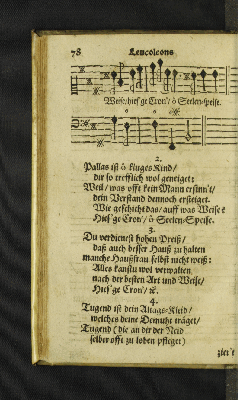 78 Leucoleons
Weise/hief'ge Cron'/ ô Seelen-speise.
2.
Pallas ist ô kluges Kind/
dir so trefflich wol geneiget:
Weil/ was offt kein Mann ersinn't/
dein Verstand dennoch ersteiget.
Wie geschicht das/ auff was Weise?
Hief'ge Cron'/ ô Seelen-Speise.
3.
Du verdienest hohen Preiß/
daß auch besser Hauß zu halten
manche Haußfrau selbst nicht weiß:
Alles kanstu wol verwalten
nach der besten Art und Weise/
Hief'ge Cron'/ ꝛc.
4.
Tugend ist dein Alltags-Kleid/
welches deine Demuht träget/
Tugend (die an dir der Neid
selber offt zu loben pfleget)
zier't